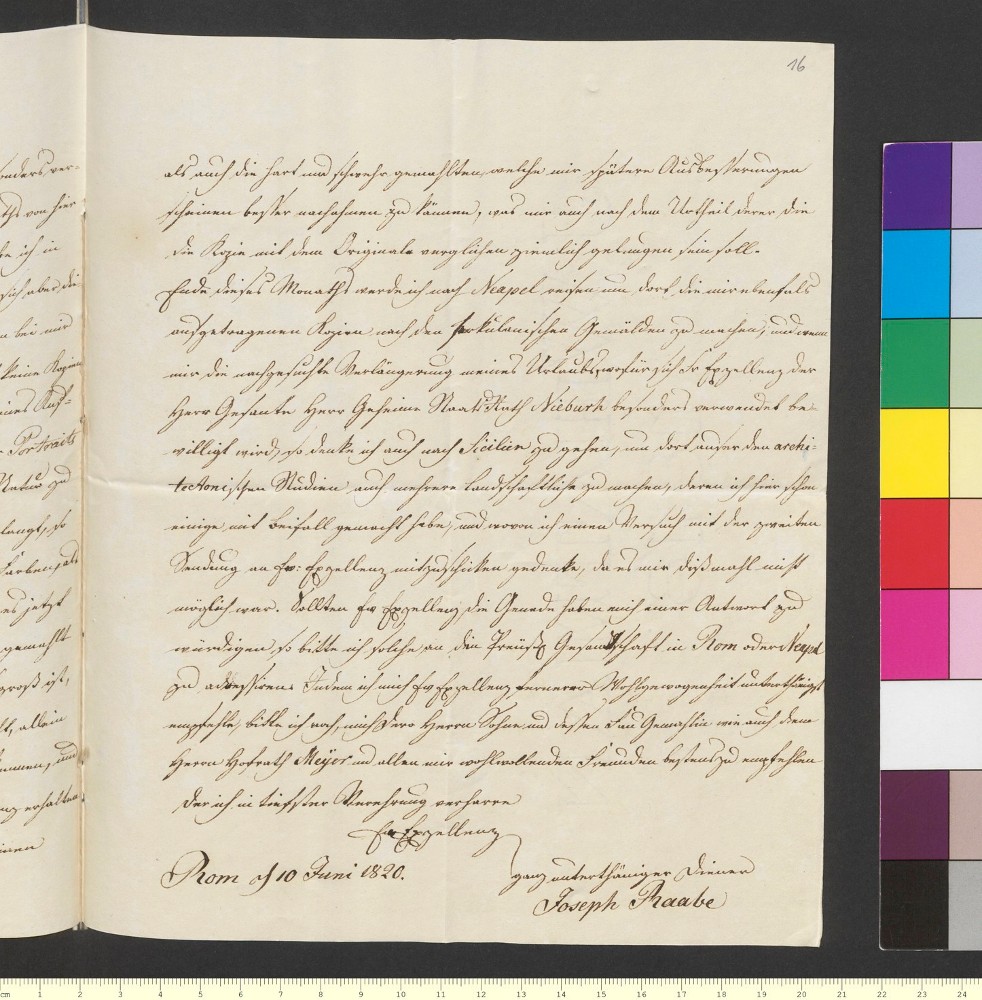 16
als auch die hart und schwehr gemahlten, welche mir spätere Ausbesserungen
scheinen besser nachahmen zu können, was mir auch nach dem Urtheil derer die
die Kopie mit dem Originale verglichen ziemlich gelungen sein soll.
Ende dieses Monaths werde ich nach Neapel reisen um dort die mir ebenfals
aufgetragenen Kopien nach den herkulanischen Gemälden zu machen, und wenn
mir die nachgesuchte Verlängerung meines Urlaubs, wofür sich Sr Exzellenz der
Herr Gesante Herr Geheime Staats Rath Nieburh besonders verwendet be-
willigt wird, so denke ich auch nach Sicilien zu gehen, um dort auser den archi-
tectonischen Studien auch mehrere landschaftliche zu machen, deren ich hier schon
einige mit Beifall gemacht habe, und wovon ich einen Versuch mit der zweiten
Sendung an Ew: Exzellenz mitzuschicken gedenke, da es mir dißmahl nicht
möglich war. Sollten Ew Exzellenz die Genade haben mich einer Antwort zu
würdigen, so bitte ich solche an die Preuß Gesandschaft in Rom oder Neapel
zu adressiren. Indem ich mich Ew Exzellenz fernerer Wohlgewogenheit unterthänigst
empfehle, bitte ich noch, mich Dero Herrn Sohne und dessen Frau Gemahlin wie auch dem
Herrn Hofrath Meyer und allen mir wohlwollenden Freunden bestens zu empfehlen
der ich in tiefster Verehrung verharre
Ew Exzellenz
Rom d 10 Juni 1820.
ganz unterthäniger Diener
Joseph Raabe
onders ver-
von hier
ich in
sich aber die
bei mir
keine Kopien
Portraits
Natur zu
langt, so
Farben, als
es jetzt
gemahlt
groß ist,
allein
und
erhalten
cm 1 2 3 4 5 6 7 8 9 10 11 12 13 14 15 16 17 18 19 20 21 22 23 24